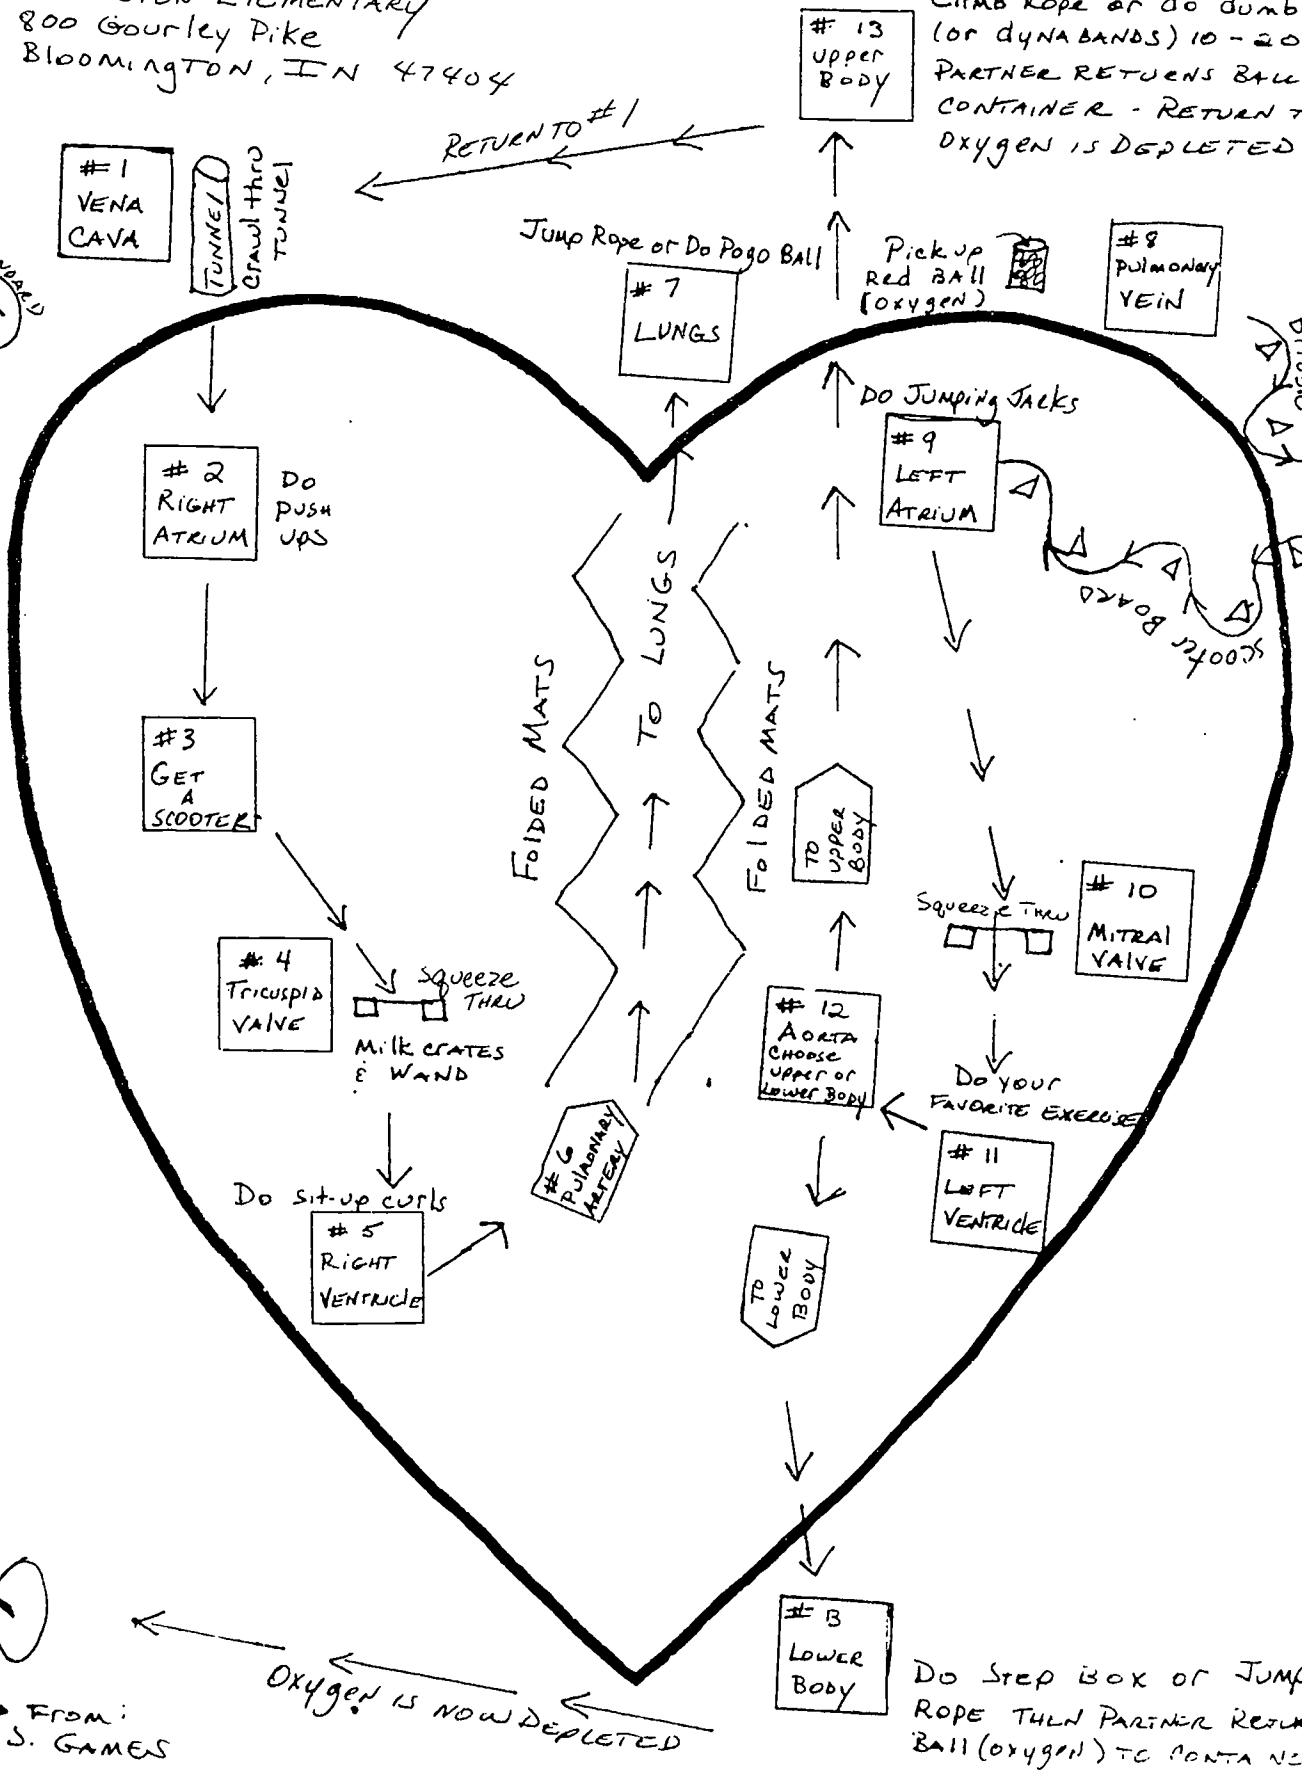 ELEMENTARY
800 Gourley Pike
BloomingTON, IN 47404
# 13
upper
BODY
Climb Rope or do dumb
(or dyNABANDS) 10-20
PARTNER RETURNS BALL
CONTAINER - RETURN T
OxygEN IS DEPLETED
RETURN TO #1
# 1
VENA
CAVA
TUNNEL
Crawl thru
TUNNEl
Jump Rope or Do Pogo BAll
# 7
LUNGS
Pick up
Red BAll
(oxygEN)
#8
PulmonAry
VEIN
Do JUMping JAcks
# 9
LEFT
ATRIUM
SCOOTER BOARD
# 2
RIGHT
ATRIUM
Do
PUSH
UPS
#3
GET
A
SCOOTER
FOLDED MATS
TO LUNGS
FOLDED MATS
TO
UPPER
BODY
Squeeze THRU
# 10
MITRAl
VALVE
# 4
TricuspiD
VAlVE
Squeeze
THRU
Milk crATES
& WAND
# 12
AORTA
CHOOSE
upper or
Lower Body
Do your
FAVORITE EXERCISE
# 11
LEFT
VENTRICle
# 6
PulmONARY
ARTERY
Do Sit-up curls
# 5
RiGHT
VENTRICle
TO
LOWER
BODY
# B
LOWER
BODY
OxygEN IS NOW DEPLETED
Do STEP BOX or JUMP
ROPE THEN PARTNER
BAll (oxygEN) TO
FROM:
S. GAMES